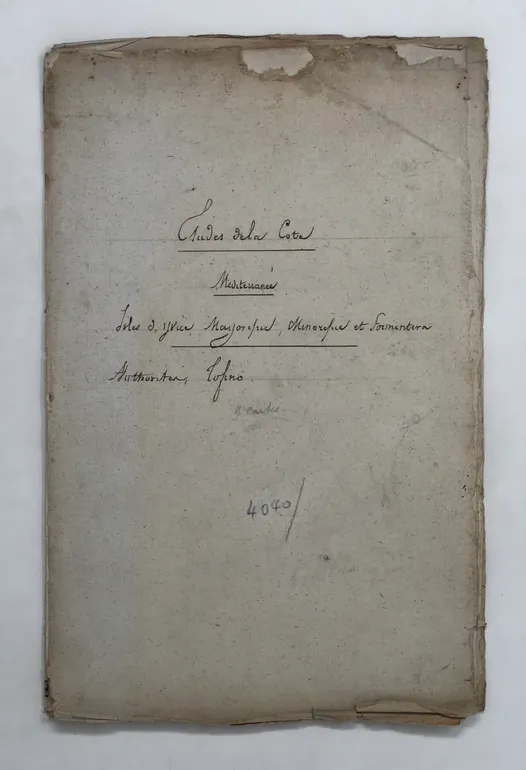 Etudes de la Cote
Mediterranée
Isles d, yvice, Mayorque, Minorque et Formentera
Authorités, Tofino.
9 cartes
4040/